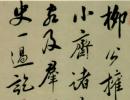 柳公權
小齋諸
玄及羣
史一過訖